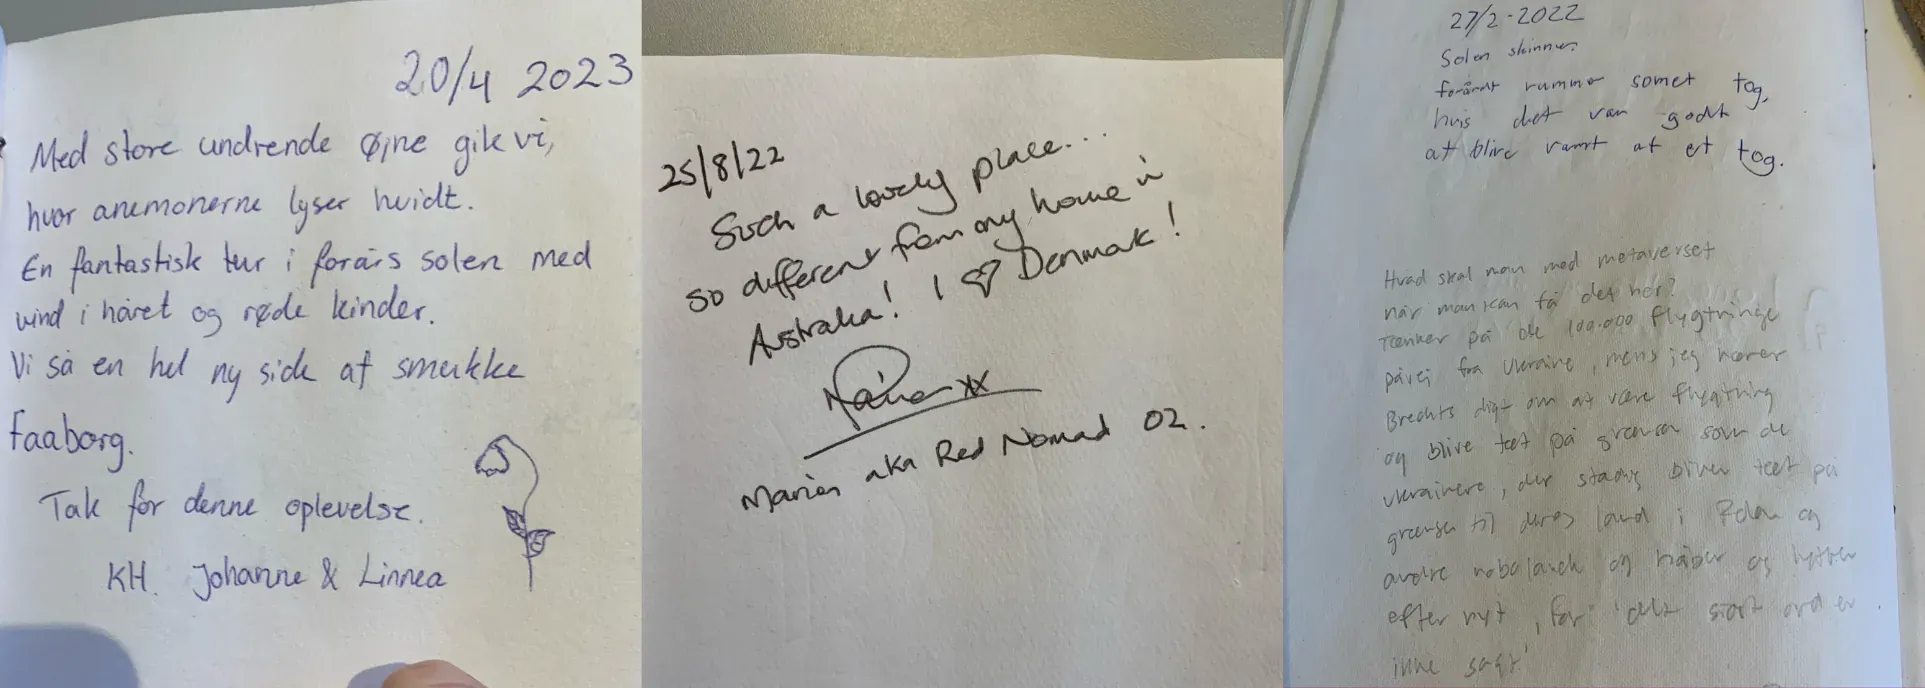 20/4 2023
Med store undrende øjne gik vi,
hvor anemonerne lyser hvidt.
En fantastisk tur i forårs solen med
vind i håret og røde kinder.
Vi så en hel ny side af smukke
Faaborg.
Tak for denne oplevelse.
KH. Johanne & Linnea
25/8/22
Such a lovely place...
so different from my home in
Australia! I ♡ Denmark!
xx
Marion aka Red Nomad OZ.
27/2-2022
Solen skinner
foråret rummer somet tog,
hvis det var godt
at blive ramt af et tog.
Hvad skal man med metaverset
når man kan få det her?
Tænker på de 100.000 flygtninge
påvej fra Ukraine, mens jeg hører
Brechts digt om at være flygtning
og blive tæt på grænsen som de
ukrainere, der stadig bliver tæt på
grænsen til deres land i Polen og
andre nabolande og håber og lytter
efter nyt, for 'det sidste ord er
ikke sagt'